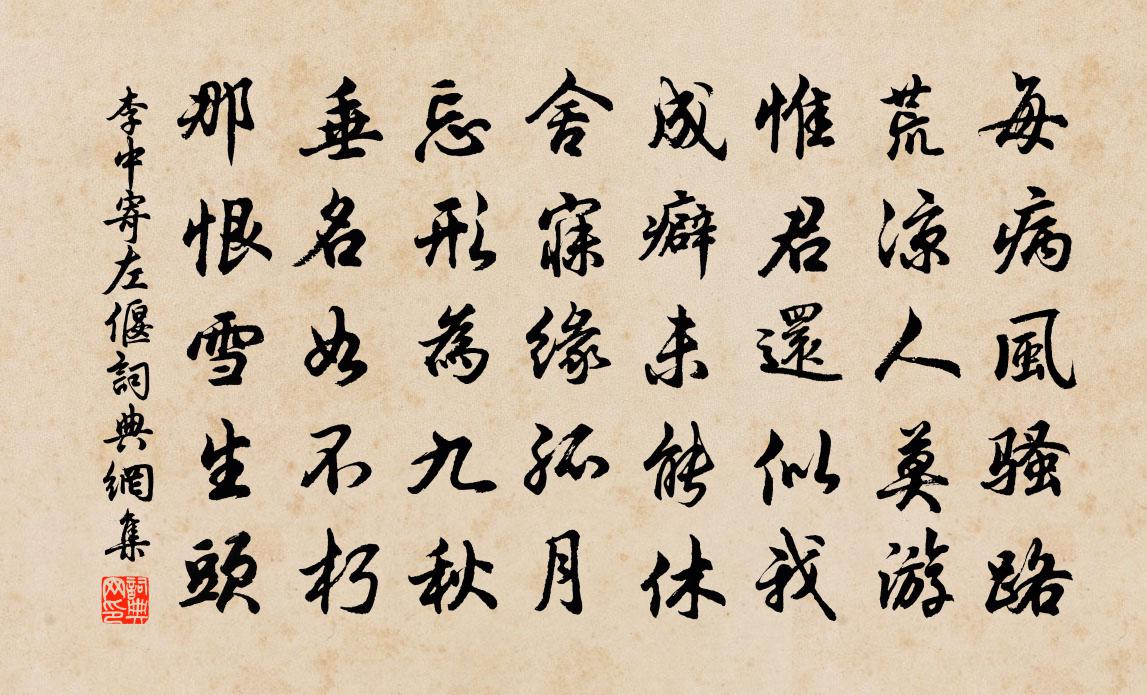 每病風騷路
荒涼人莫游
惟君還似我
成癖未能休
舍寐緣孤月
忘形為九秋
垂名如不朽
那恨雪生頭
李中寄左偃詞典網集
詞典網印